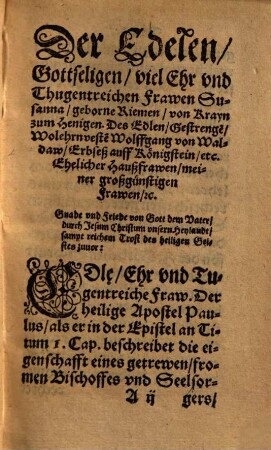 Der Edelen/
Gottseligen/ viel Ehr vnd
Thugentreichen Frawen Su-
sanna/ geborne Riemen/ von Krayn
zum Henigen. Des Edlen/ Gestrenge/
Wolehrnvestē Wolffgang von Wal-
daw/ Erbseß auff Königstein/ etc.
Ehelicher Haußfrawen/ mei-
ner großgünstigen
Frawen/ ꝛc.
Gnade vnd Friede von Gott dem Vater/
durch Jesum Christum vnsern Heylande/
sampt reichem Trost des heiligen Gei-
stes zuuor:
EDle/ Ehr vnd Tu-
gentreiche Fraw. Der
heilige Apostel Pau-
lus/ als er in der Epistel an Ti-
tum 1. Cap. beschreibet die ei-
genschafft eines getrewen/ fro-
men Bischoffes vnd Seelsor-
A ij gers/